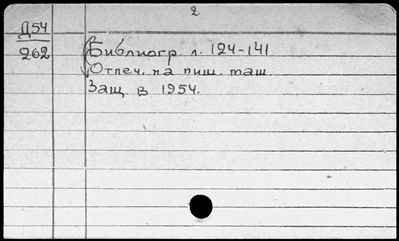 2
Д54
262
Библиогр. л. 124-141
Отпеч. на пиш. маш.
Защ. в 1954.